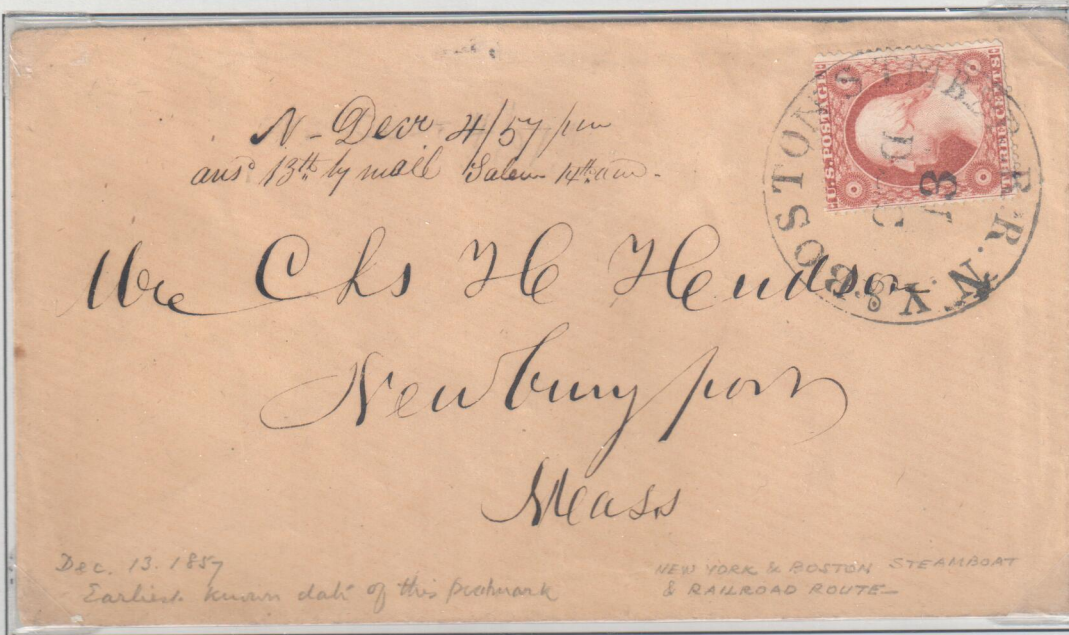 N - Decr 4/57 pm
ansd 13th by mail Salem 14th am.
U.S. POSTAGE
THREE CENTS
N. Y. & BOSTON STMB. & R. R.
DEC
3
Mr Chs H Hudson
Newburyport
Mass
Dec. 13. 1857
Earliest known date of this postmark
NEW YORK & BOSTON STEAMBOAT
& RAILROAD ROUTE—